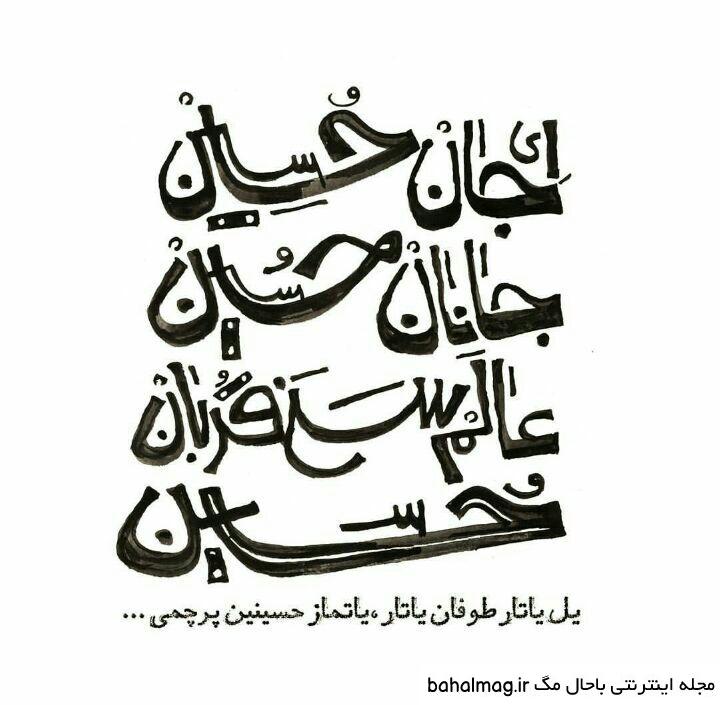 ای جان حسین
جانان حسین
عالم سنه قربان
حسین
یل یاتار طوفان یاتار ، یاتماز حسینین پرچمی ...
مجله اینترنتی باحال مگ bahalmag.ir